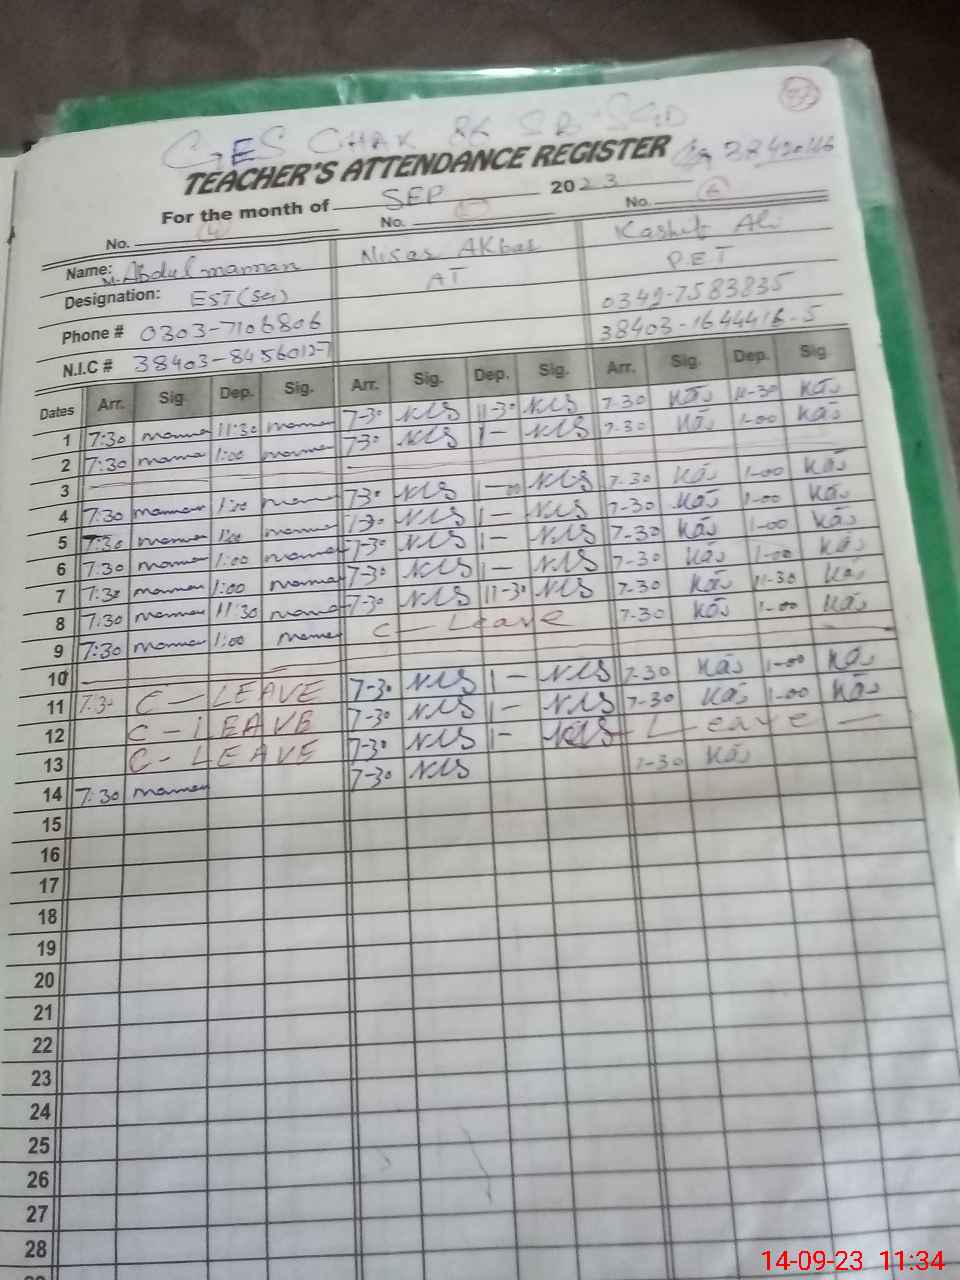 GES CHAK 86 SB SGD
TEACHER'S ATTENDANCE REGISTER 38420166
For the month of SEP 2023
No. 4 No. 5 No. 6
Name: M. Abdul mannan Nisar AKbar Kashif Ali
Designation: EST (Sci) AT P.E.T
Phone # 0303-7106806 0349-7583835
N.I.C # 38403-8456012-7 38403-1644416-5
Dates Arr. Sig. Dep. Sig. Arr. Sig. Dep. Sig. Arr. Sig. Dep. Sig.
1 7:30 manna 11:30 manna 7-30 NLS 11-30 NLS 7-30 Kas 11-30 Kas
2 7:30 manna 1:00 manna 7-30 NLS 1- NLS 7-30 Kas 1-00 Kas
3
4 7:30 mannan 1:00 manna 7-30 NLS 1-00 NLS 7-30 Kas 1-00 Kas
5 7:30 mannan 1:00 manna 7-30 NLS 1- NLS 7-30 Kas 1-00 Kas
6 7:30 mannan 1:00 manna 7-30 NLS 1- NLS 7-30 Kas 1-00 Kas
7 7:30 mannan 1:00 manna 7-30 NLS 1- NLS 7-30 Kas 1-00 Kas
8 7:30 mannan 11:30 manna 7-30 NLS 11-30 NLS 7-30 Kas 11-30 Kas
9 7:30 mannan 1:00 manna C - Leave 7-30 Kas 1-00 Kas
10
11 7:30 C - LEAVE 7-30 NLS 1- NLS 7-30 Kas 1-00 Kas
12 C - LEAVE 7-30 NLS 1- NLS 7-30 Kas 1-00 Kas
13 C - LEAVE 7-30 NLS 1- NLS - Leave -
14 7:30 mannan 7-30 NLS 7-30 Kas
15
16
17
18
19
20
21
22
23
24
25
26
27
28
14-09-23 11:34